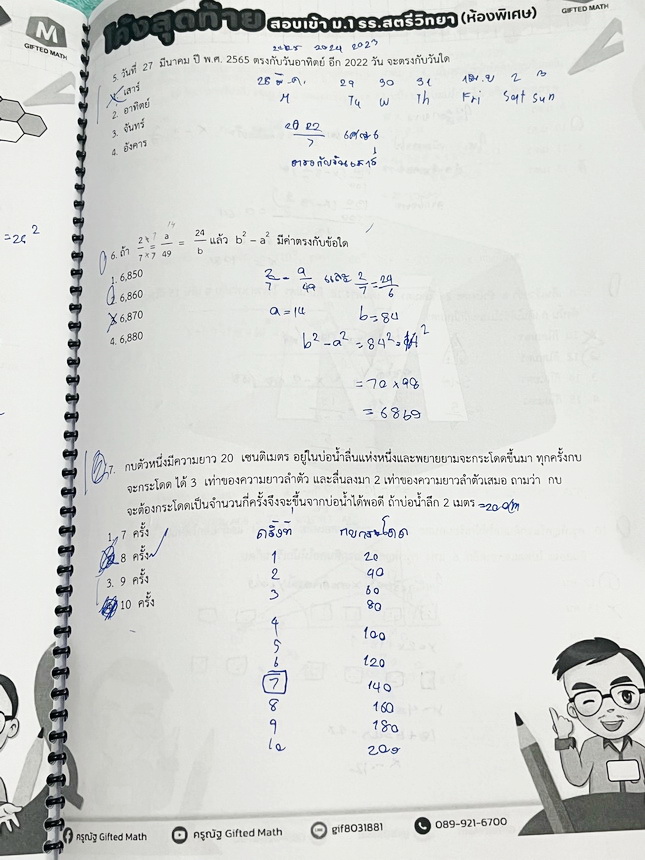 M
GIFTED MATH
โค้งสุดท้าย สอบเข้า ม.1 รร.สตรีวิทยา (ห้องพิเศษ)
GIFTED MATH
2025 2024 2023
5. วันที่ 27 มีนาคม ปี พ.ศ. 2565 ตรงกับวันอาทิตย์ อีก 2022 วัน จะตรงกับวันใด
1. เสาร์
2. อาทิตย์
3. จันทร์
4. อังคาร
28 มี.ค. 29 30 31 2 3
M Tu W Th Fri Sat Sun
2022/7 เศษ 6
ตรงกับวันเสาร์
6. ถ้า 2/7 = a/49 = 24/b แล้ว b² − a² มีค่าตรงกับข้อใด
1. 6,850
2. 6,860
3. 6,870
4. 6,880
2/7 = a/49 และ 2/7 = 24/b
a = 14 b = 84
b² − a² = 84² - 14²
= 70 × 98
= 6860
7. กบตัวหนึ่งมีความยาว 20 เซนติเมตร อยู่ในบ่อน้ำลื่นแห่งหนึ่งและพยายามจะกระโดดขึ้นมา ทุกครั้งกบ
จะกระโดด ได้ 3 เท่าของความยาวลำตัว และลื่นลงมา 2 เท่าของความยาวลำตัวเสมอ ถามว่า กบ
จะต้องกระโดดเป็นจำนวนกี่ครั้งจึงจะขึ้นจากบ่อน้ำได้พอดี ถ้าบ่อน้ำลึก 2 เมตร =200cm
1. 7 ครั้ง
2. 8 ครั้ง
3. 9 ครั้ง
4. 10 ครั้ง
ครั้งที่ กบกระโดด
1 20
2 40
3 60
80
4 100
5
6 120
7 140
8 160
9 180
10 200
ครูณัฐ Gifted Math
ครูณัฐ Gifted Math
gif8031881
089-921-6700